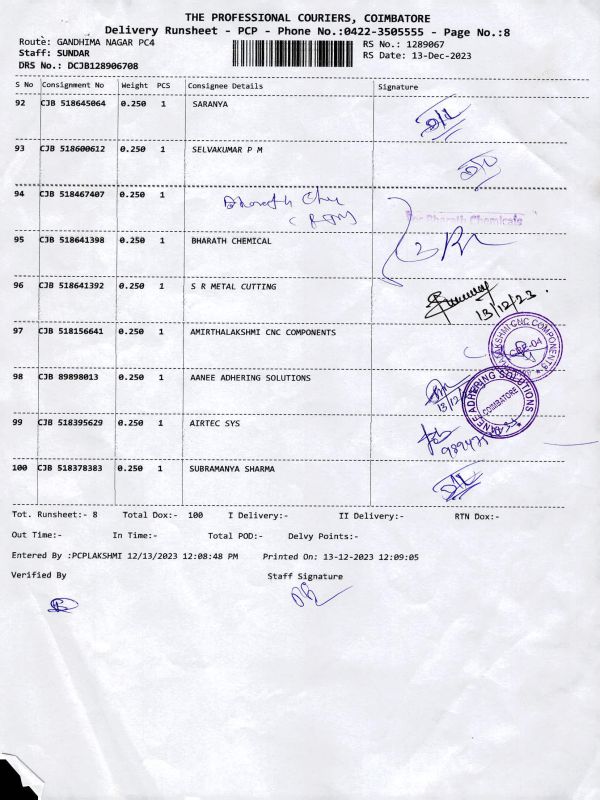 THE PROFESSIONAL COURIERS, COIMBATORE
Delivery Runsheet - PCP - Phone No.:0422-3505555 - Page No.:8
Route: GANDHIMA NAGAR PC4 RS No.: 1289067
Staff: SUNDAR RS Date: 13-Dec-2023
DRS No.: DCJB128906708
S No Consignment No Weight PCS Consignee Details Signature
92 CJB 518645064 0.250 1 SARANYA
93 CJB 518600612 0.250 1 SELVAKUMAR P M
94 CJB 518467407 0.250 1 Bharath
For Bharath Chemicals
95 CJB 518641398 0.250 1 BHARATH CHEMICAL
96 CJB 518641392 0.250 1 S R METAL CUTTING
13/12/23.
97 CJB 518156641 0.250 1 AMIRTHALAKSHMI CNC COMPONENTS
LAKSHMI CNC COMPONENTS
98 CJB 89898013 0.250 1 AANEE ADHERING SOLUTIONS
13/12
AANEE ADHERING SOLUTIONS
COIMBATORE
99 CJB 518395629 0.250 1 AIRTEC SYS
100 CJB 518378383 0.250 1 SUBRAMANYA SHARMA
Tot. Runsheet:- 8 Total Dox:- 100 I Delivery:- II Delivery:- RTN Dox:-
Out Time:- In Time:- Total POD:- Delvy Points:-
Entered By :PCPLAKSHMI 12/13/2023 12:08:48 PM Printed On: 13-12-2023 12:09:05
Verified By Staff Signature